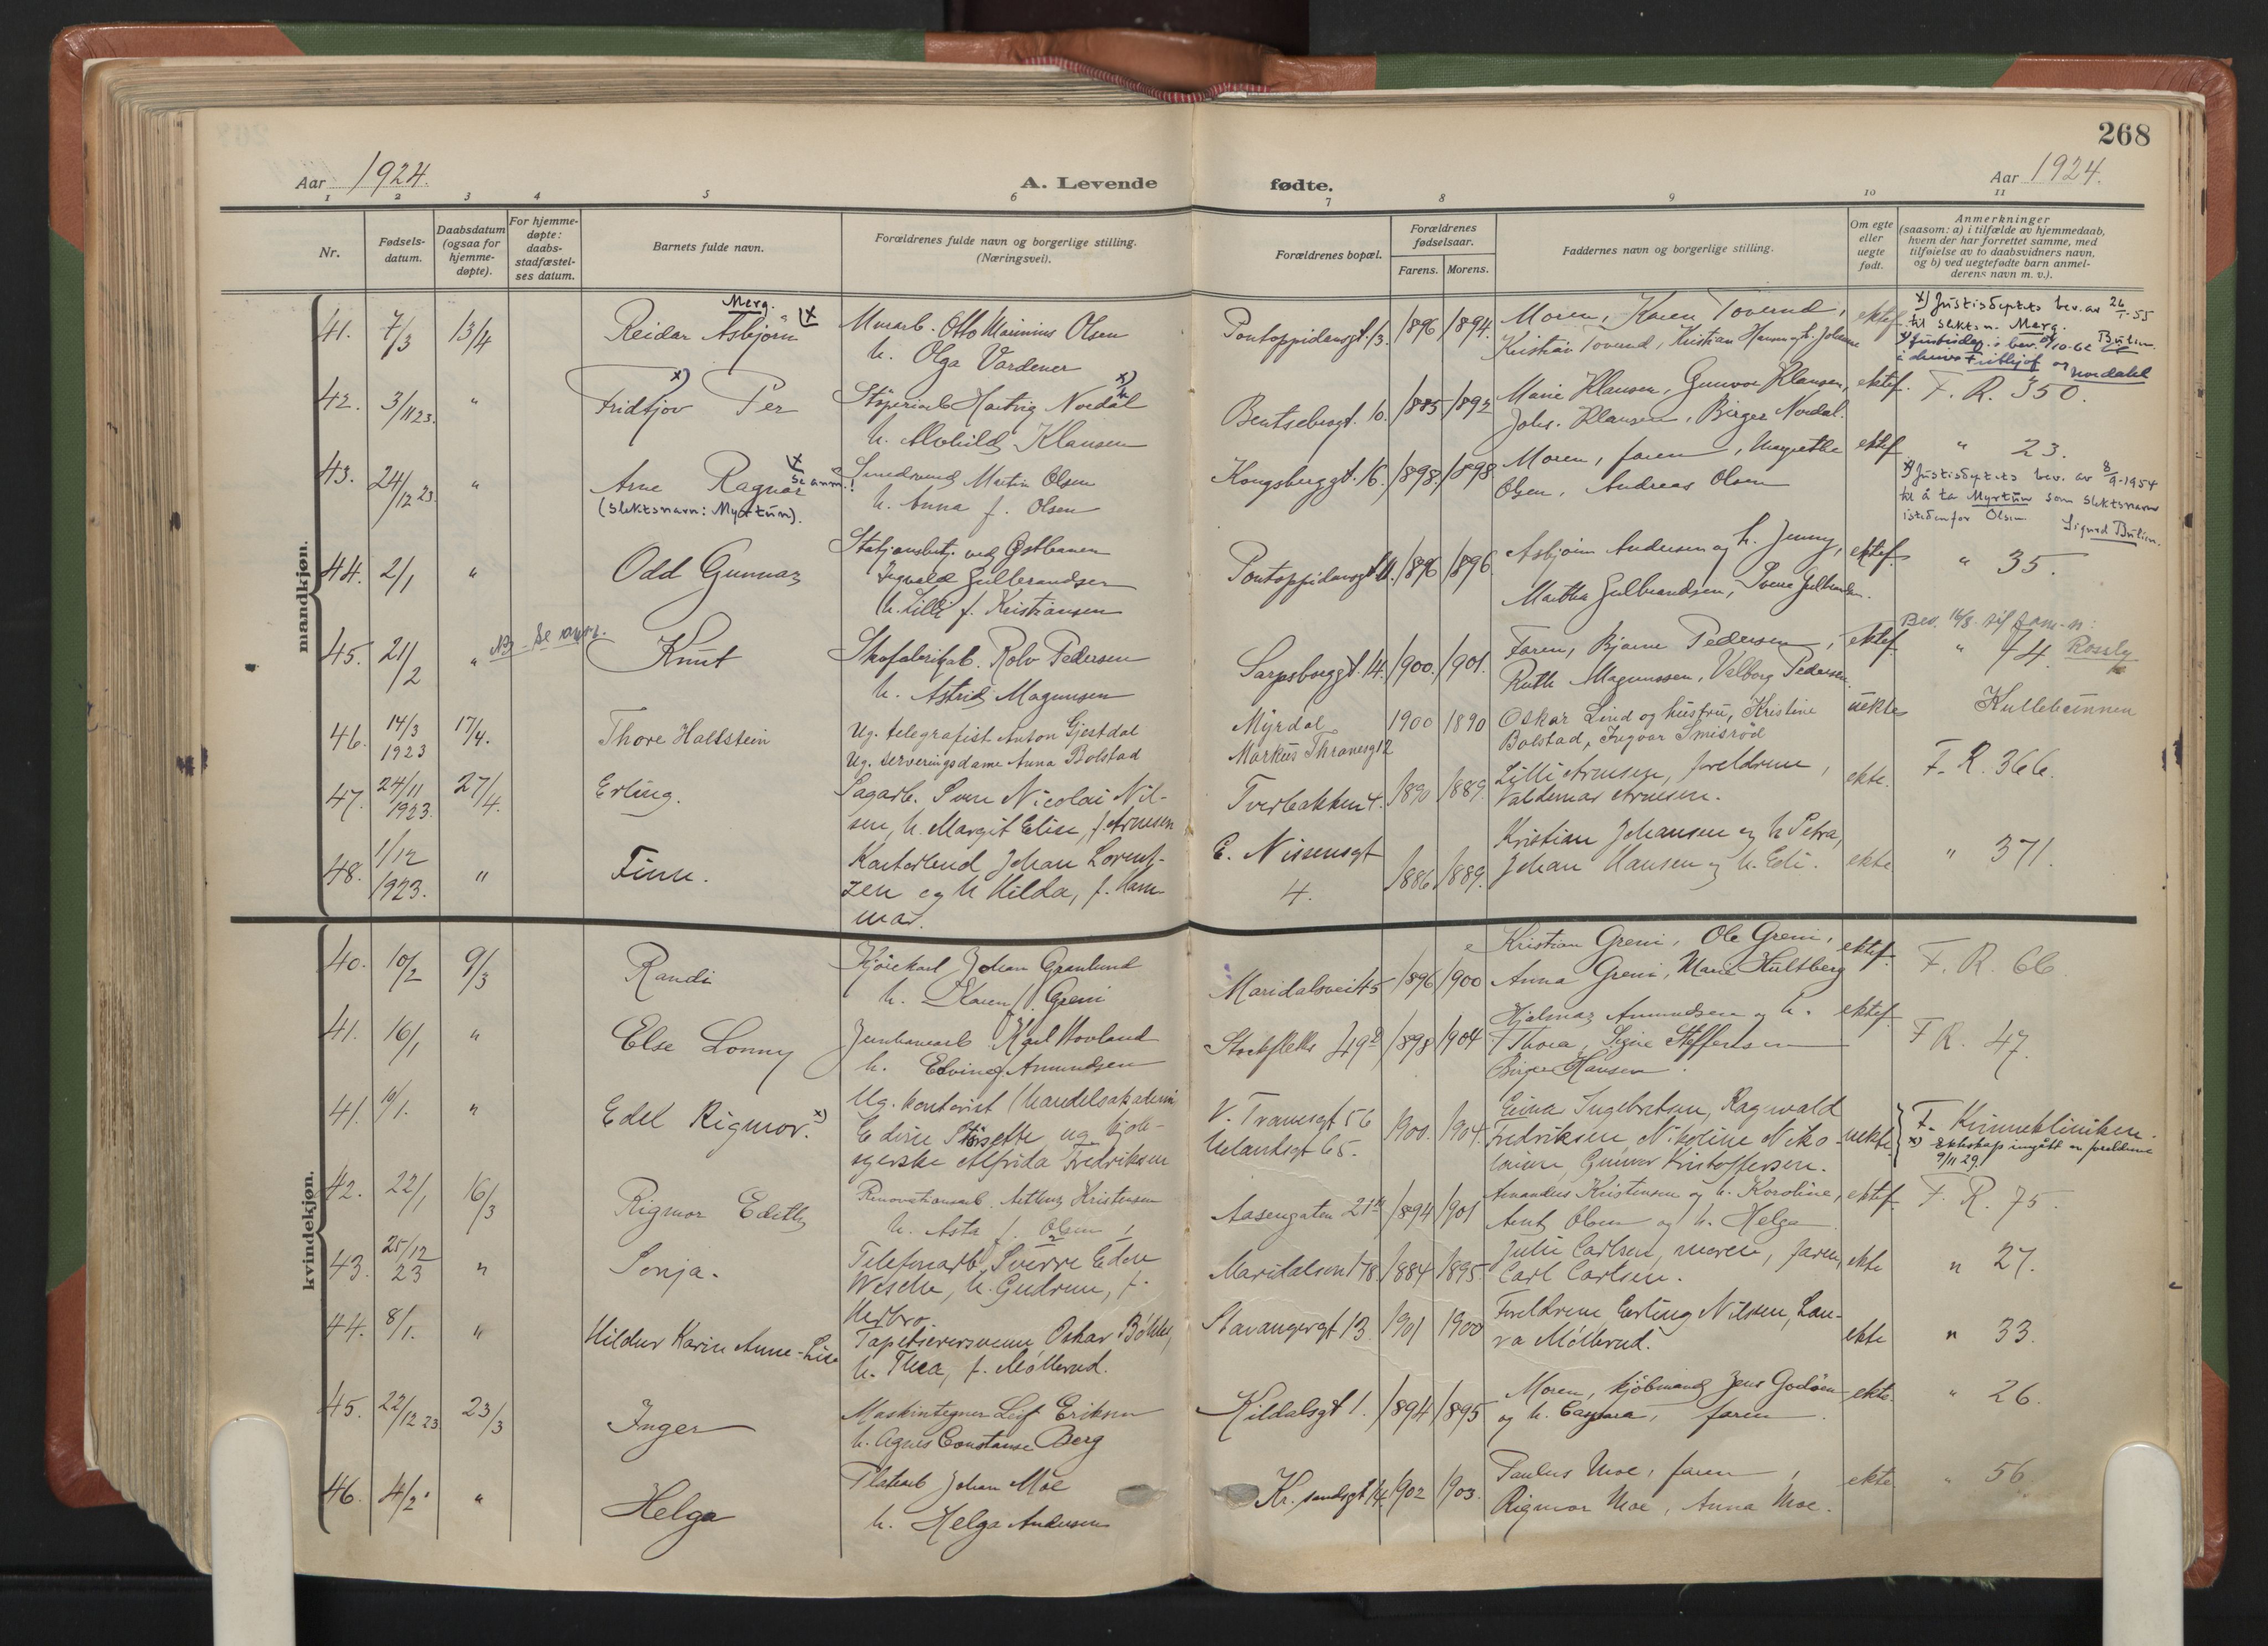 268
Aar 1924.
A. Levende fødte.
Aar 1924.
1 2 3 4 5 6 7 8 9 10 11
Nr.
Fødsels-
datum.
Daabsdatum
(ogsaa for
hjemme-
døpte).
For hjemme-
døpte:
daabs-
stadfæstel-
ses datum.
Barnets fulde navn.
Forældrenes fulde navn og borgerlige stilling.
(Næringsvei).
Forældrenes bopæl.
Forældrenes
fødselsaar.
Farens. Morens.
Faddernes navn og borgerlige stilling.
Om egte
eller
uegte
født.
Anmerkninger
(saasom: a) i tilfælde av hjemmedaab,
hvem der har forrettet samme, med
tilføielse av to daabsvidners navn,
og b) ved uegtefødte barn anmel-
derens navn m. v.).
mandkjøn.
41. 7/3 13/4
Merg.
Reidar Asbjørn x)
Murarb. Otto Marinius Olsen
h. Olga Vardener
Pontoppidansgt. 13. 1896 1894.
Moren, Karen Toverud,
Kristian Toverud, Kristian Hansen og h. Johanne
ektef.
x) Justisdeptets bev. av 26/1-55
til slektsn. Merg.
Bülin.
42. 3/11 23. "
x)
Fridtjov Per
Støperiarb. Hartvig Nordal x)
h. Alvhild Klausen
Bentsebrogt. 10. 1885 1892
Marie Klausen, Gunvor Klausen,
Johs. Klausen, Birger Nordal.
ektef.
F. R. 350.
43. 24/12 23. "
Arne Ragnar x) Se anm.!
(slektsnavn: Myrtun).
Smedsvend Martin Olsen
h. Anna f. Olsen
Kongsberggt. 16. 1898 1898
Moren, faren, Margrethe
Olsen, Andreas Olsen
ektef.
" 23.
x) Justisdeptets bev. av 8/9-1954
til å ta Myrtun som slektsnavn
istedenfor Olsen. Sigurd Bülin.
44. 2/1 "
Odd Gunnar
Stasjonsbetj. ved Østbanen
Ingvald Gulbrandsen
h. Lilli f. Kristiansen
Pontoppidansgt. 11. 1896 1896.
Asbjørn Andersen og h. Jenny,
Martha Gulbrandsen, Sverre Gulbrandsen.
ektef.
" 35.
45. 21/2 " NB. Se anm.
Knut
Skofabrikarb. Rolv Pedersen
h. Astrid Magnussen
Sarpsborggt. 14. 1900. 1901.
Faren, Bjarne Pedersen,
Ruth Magnussen, Valborg Pedersen.
ektef.
" 44. Rossly
46. 14/3 1923 17/4.
Thore Hallstein
Ug. telegrafist Anton Gjestdal
Ug. serveringsdame Anna Bolstad
Myrdal
Markus Thranesgt 2
1900 1890
Oskar Lind og husfru, Kristine
Bolstad, Ingvar Smisrød
uekte
Kullebunnen
47. 24/11 1923. 27/4.
Erling.
Sagarb. Sven Nicolai Nil-
sen, h. Margit Elise, f. Arnesen
Tverbakken 4. 1890 1889.
Lilli Arnesen, foreldrene,
Valdemar Arnesen.
ekte.
F. R. 366.
48. 1/12 1923. "
Finn.
Kontorbud Johan Lorent-
zen og h. Hilda, f. Ham-
mar.
E. Nissensgt
4.
1886 1889.
Kristian Johansen og h. Petra,
Johan Hansen og h. Edi.
ekte
" 371.
kvindekjøn.
40. 10/2 9/3
Randi
Kjørekarl Johan Granlund
h. Karen f. Greni
Maridalsvei 45 1896 1900
Kristian Greni, Ole Greni,
Anna Greni, Marie Hultberg
ektef.
F. R. 66.
41. 16/1 "
Else Lonny
Jernbanearb. Karl Hovland
h. Edvine Amundsen
1898 1904
Hjalmar Amundsen og h.
Thora, Signe Steffensen
Birger Hansen.
ektef.
F R. 47.
41. 19/1. "
Edel Rigmor. x)
Ug. kontorist (Handelsakademi
ug. kjole-
syerske Alfrida Fredriksen
V. Tranesgt 56
Uelandsgt 65.
1900. 1904.
Einar Ingebretsen, Ragnvald
Fredriksen, Nikoline Niko-
laisen, Gunvor Kristoffersen.
uekte
F. Kvinneklinikken.
x) Ekteskap inngått av foreldrene
9/11 29.
42. 22/1 16/3
Rigmor Edith
Renovationsarb. Arthur Kristensen
h. Asta f. Olsen
Aasengaten 21 1894 1901
Amandus Kristensen og h. Karoline,
Arnt Olsen og h. Helga
ektef.
F. R. 75.
43. 25/12 23 "
Sonja.
Telefonarb. Sverre Eden
Wesche, h. Gudrun, f.
Herbro.
Maridalsvn 178 1884 1895.
Julie Carlsen, moren, faren,
Carl Carlsen.
ekte
" 27.
44. 8/1. "
Hildur Karin Anne-Lise
Tapetserersvenn Oskar Böhler,
h. Thea, f. Møllerud.
Stavangergt 13. 1901 1900
Foreldrene Erling Nilsen, Lau-
ra Møllerud.
ekte
" 33.
45. 22/12 23 23/3
Inger
Maskintegner Leif Eriksen
h. Agnes Constanse Berg
Kildalsgt 1. 1894 1895
Moren, kjøbmand Jens Godøen
og h. Caspara, faren.
ekte.
" 26.
46. 4/2. "
Helga
Platearb Johan Moe
h. Helga Andersen
Kr. sandsgt 14 1902 1903.
Paulus Moe, faren,
Rigmor Moe, Anna Moe.
ekte
" 56.